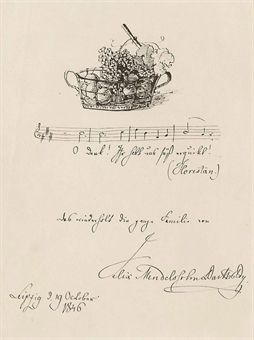 O dank! Ihr habt uns süß erquickt!
(Florestan.)
das wiederholt die ganze Familie von
Felix Mendelssohn Bartholdy
Leipzig d. 19 October
1846